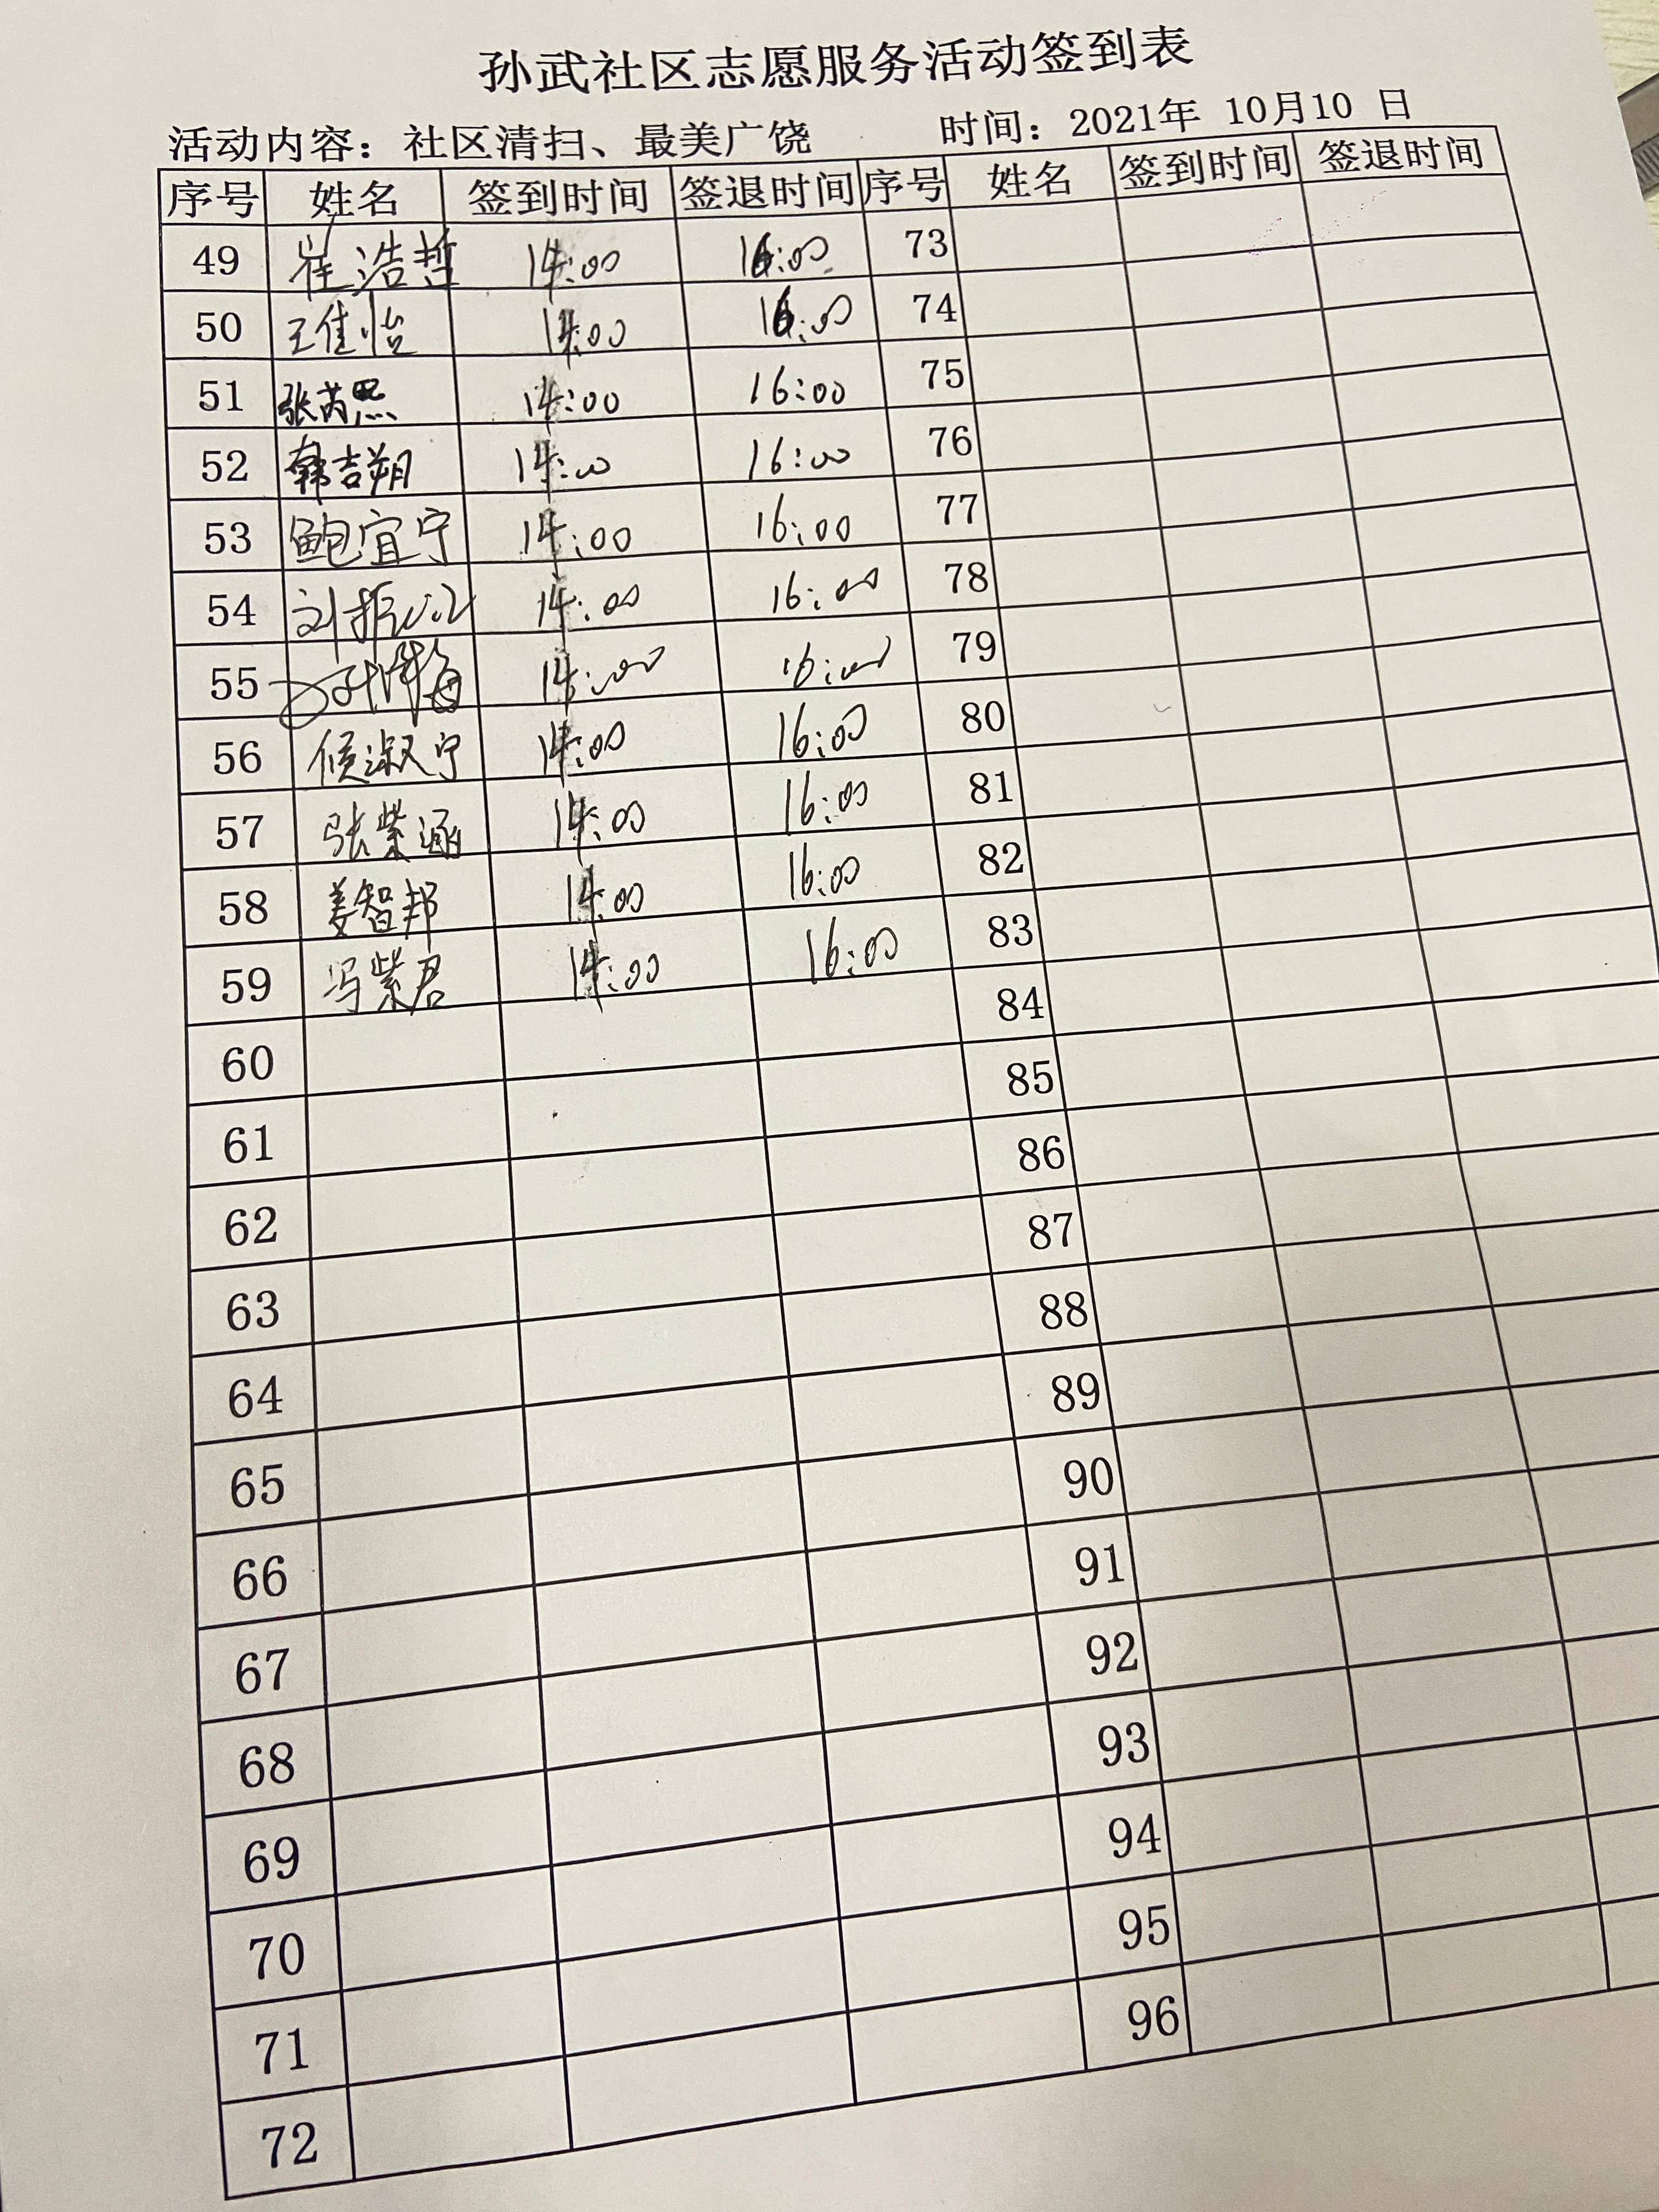 孙武社区志愿服务活动签到表
活动内容：社区清扫、最美广饶 时间：2021年 10月10 日
序号 姓名 签到时间 签退时间 序号 姓名 签到时间 签退时间
49 崔浩哲 14:00 16:00 73
50 王佳怡 14:00 16:00 74
51 张芮 14:00 16:00 75
52 韩吉朔 14:00 16:00 76
53 鲍宜宁 14:00 16:00 77
54 刘振 14:00 16:00 78
55 14:00 16:00 79
56 候淑宁 14:00 16:00 80
57 张紫涵 14:00 16:00 81
58 姜智邦 14:00 16:00 82
59 冯紫君 14:00 16:00 83
60 84
61 85
62 86
63 87
64 88
65 89
66 90
67 91
68 92
69 93
70 94
71 95
72 96